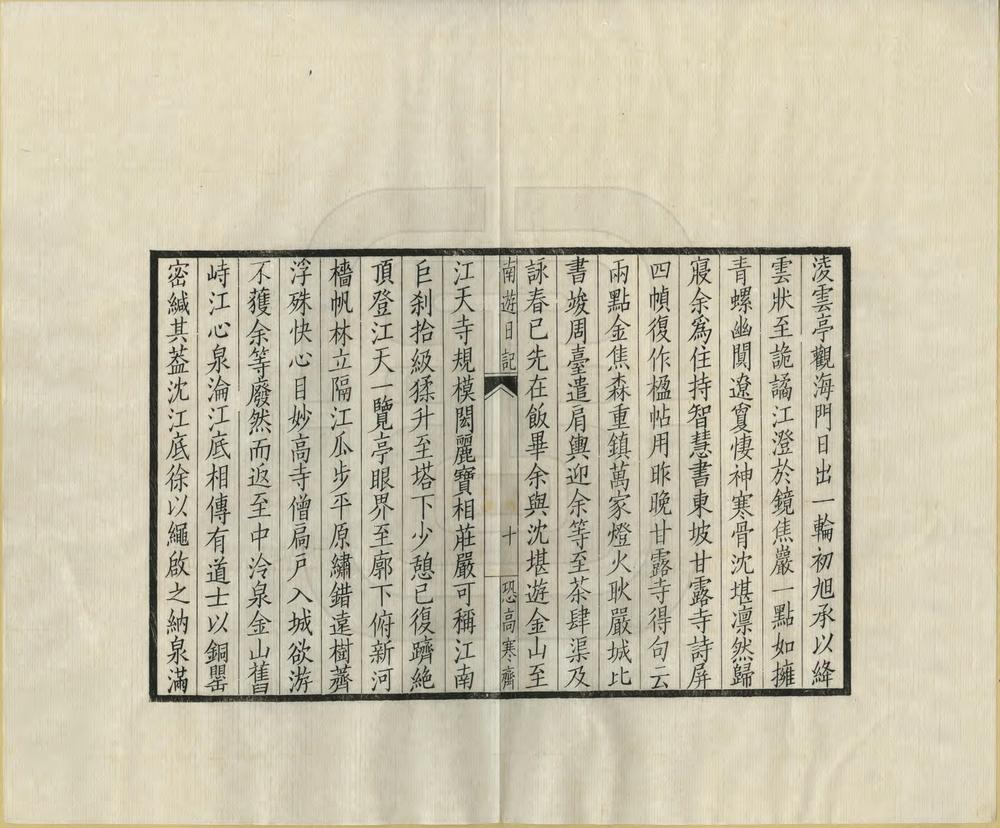 淩雲亭觀海門日出一輪初旭承以絳
雲狀至詭譎江澄於鏡焦巖一點如擁
青螺幽閴遼敻悽神寒骨沈堪凛然歸
寢余爲住持智慧書東坡甘露寺詩屏
四幀復作楹帖用昨晚甘露寺得句云
兩點金焦森重鎮萬家燈火耿嚴城比
書竣周臺遣肩輿迎余等至茶肆渠及
詠春已先在飯畢余與沈堪遊金山至
南遊日記
十
恐高寒齋
江天寺規模閎麗寶相莊嚴可稱江南
巨刹拾級猱升至塔下少憩已復躋絶
頂登江天一覽亭眼界至廓下俯新河
檣帆林立隔江瓜步平原繡錯遠樹薺
浮殊快心目妙高寺僧扃戶入城欲游
不獲余等廢然而返至中泠泉金山舊
峙江心泉淪江底相傳有道士以銅罌
密緘其葢沈江底徐以繩啟之納泉滿